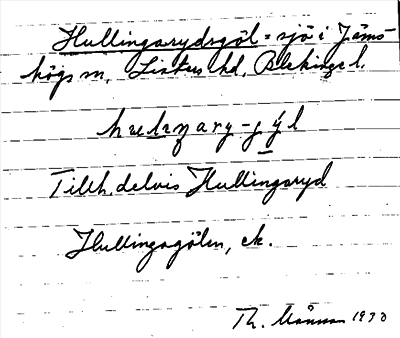 Hullingsrydsgöl = sjö i Jäms-
högs sn, Listers hd, Blekinge l.
Tillh. delvis Hullingsryd
Hullingagölen, ek.
Th. Månsson 1930